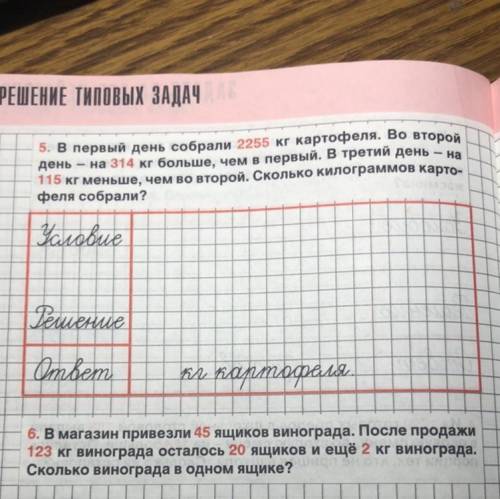 РЕШЕНИЕ ТИПОВЫХ ЗАДАЧ
5. В первый день собрали 2255 кг картофеля. Во второй
день – на 314 кг больше, чем в первый. В третий день – на
115 кг меньше, чем во второй. Сколько килограммов карто-
феля собрали?
Условие
Решение
Ответ кг картофеля.
6. В магазин привезли 45 ящиков винограда. После продажи
123 кг винограда осталось 20 ящиков и ещё 2 кг винограда.
Сколько винограда в одном ящике?